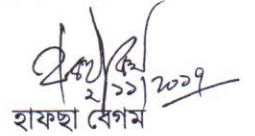 ২/১১/২০১৭
হাফছা বেগম